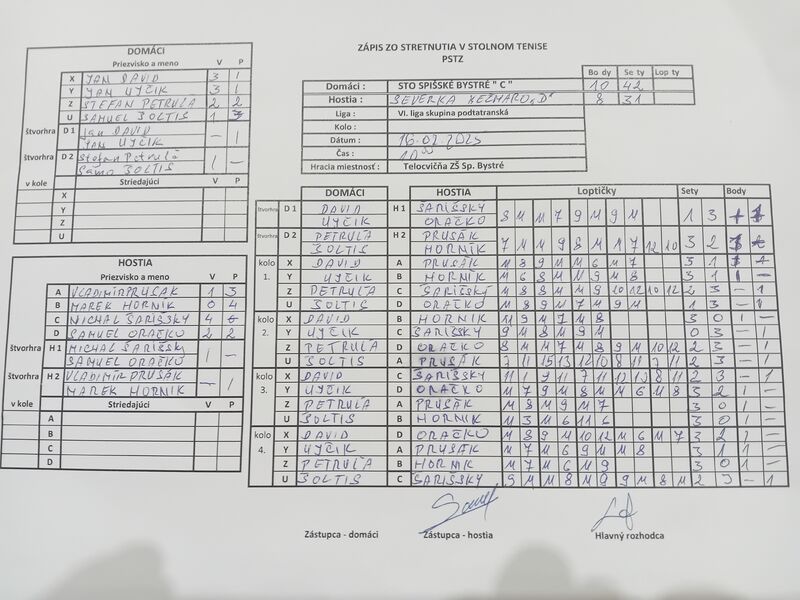 ZÁPIS ZO STRETNUTIA V STOLNOM TENISE
PSTZ
Bo dy Se ty Lop ty
Domáci : STO SPIŠSKÉ BYSTRÉ " C " 10 42
Hostia : SEVERKA KEŽMAROK „D“ 8 31
Liga : VI. liga skupina podtatranská
Kolo :
Dátum : 16.02.2025
Čas : 10 00
Hracia miestnosť : Telocvičňa ZŠ Sp. Bystré
DOMÁCI
Priezvisko a meno V P
X JAN DAVID 3 1
Y JAN UYČIK 3 1
Z ŠTEFAN PETRUĽA 2 2
U SAMUEL ŠOLTIS 1 3
štvorhra D 1 Jan DAVID
JAN UYČIK — 1
štvorhra D 2 Štefan Petruľa
Samo ŠOLTIS 1 —
v kole Striedajúci V P
X
Y
Z
U
HOSTIA
Priezvisko a meno V P
A VLADIMÍR PRUSÁK 1 3
B MAREK HORNIK 0 4
C MICHAL ŠARIŠSKY 4
D SAMUEL ORAČKO 2 2
štvorhra H 1 MICHAL ŠARIŠSKY
SAMUEL ORAČKO 1 —
štvorhra H 2 VLADIMÍR PRUSÁK
MAREK HORNIK — 1
v kole Striedajúci V P
A
B
C
D
DOMÁCI HOSTIA Loptičky Sety Body
štvorhra D 1 DAVID H 1 ŠARIŠSKY
UYČIK ORAČKO 8 11 11 7 9 11 9 11 1 3
štvorhra D 2 PETRUĽA H 2 PRUSÁK
ŠOLTIS HORNÍK 7 11 11 9 8 11 11 7 12 10 3 2
kolo 1. X DAVID A PRUSÁK 11 8 9 11 11 6 11 7 3 1
Y UYČIK B HORNIK 11 6 8 11 11 9 11 8 3 1 1 —
Z PETRUĽA C ŠARIŠSKÝ 11 8 8 11 9 11 12 10 10 12 2 3 — 1
U ŠOLTIS D ORAČKO 11 8 9 11 7 11 9 11 1 3 — 1
kolo 2. X DAVID B HORNIK 11 9 11 7 11 8 3 0 1 —
Y UYČIK C ŠARIŠSKY 9 11 8 11 9 11 0 3 — 1
Z PETRUĽA D ORAČKO 2 3 — 1
U ŠOLTIS A PRUSÁK 2 3 — 1
kolo 3. X DAVID C ŠARIŠSKY 2 3 — 1
Y UYČIK D ORAČKO 11 7 9 11 8 11 11 6 11 8 3 2 1 —
Z PETRUĽA A PRUSÁK 11 8 11 9 11 7 3 0 1 —
U ŠOLTIS B HORNIK 11 3 11 6 11 6 3 0 1 —
kolo 4. X DAVID D ORAČKO 11 8 9 11 10 12 11 6 11 7 3 2 1 —
Y UYČIK A PRUSÁK 11 7 11 6 9 11 11 8 3 1 1 —
Z PETRUĽA B HORNIK 11 7 11 6 11 9 3 0 1 —
U ŠOLTIS C ŠARIŠSKY 9 11 11 8 11 9 9 11 8 11 2 3 — 1
Zástupca - domáci Zástupca - hostia Hlavný rozhodca